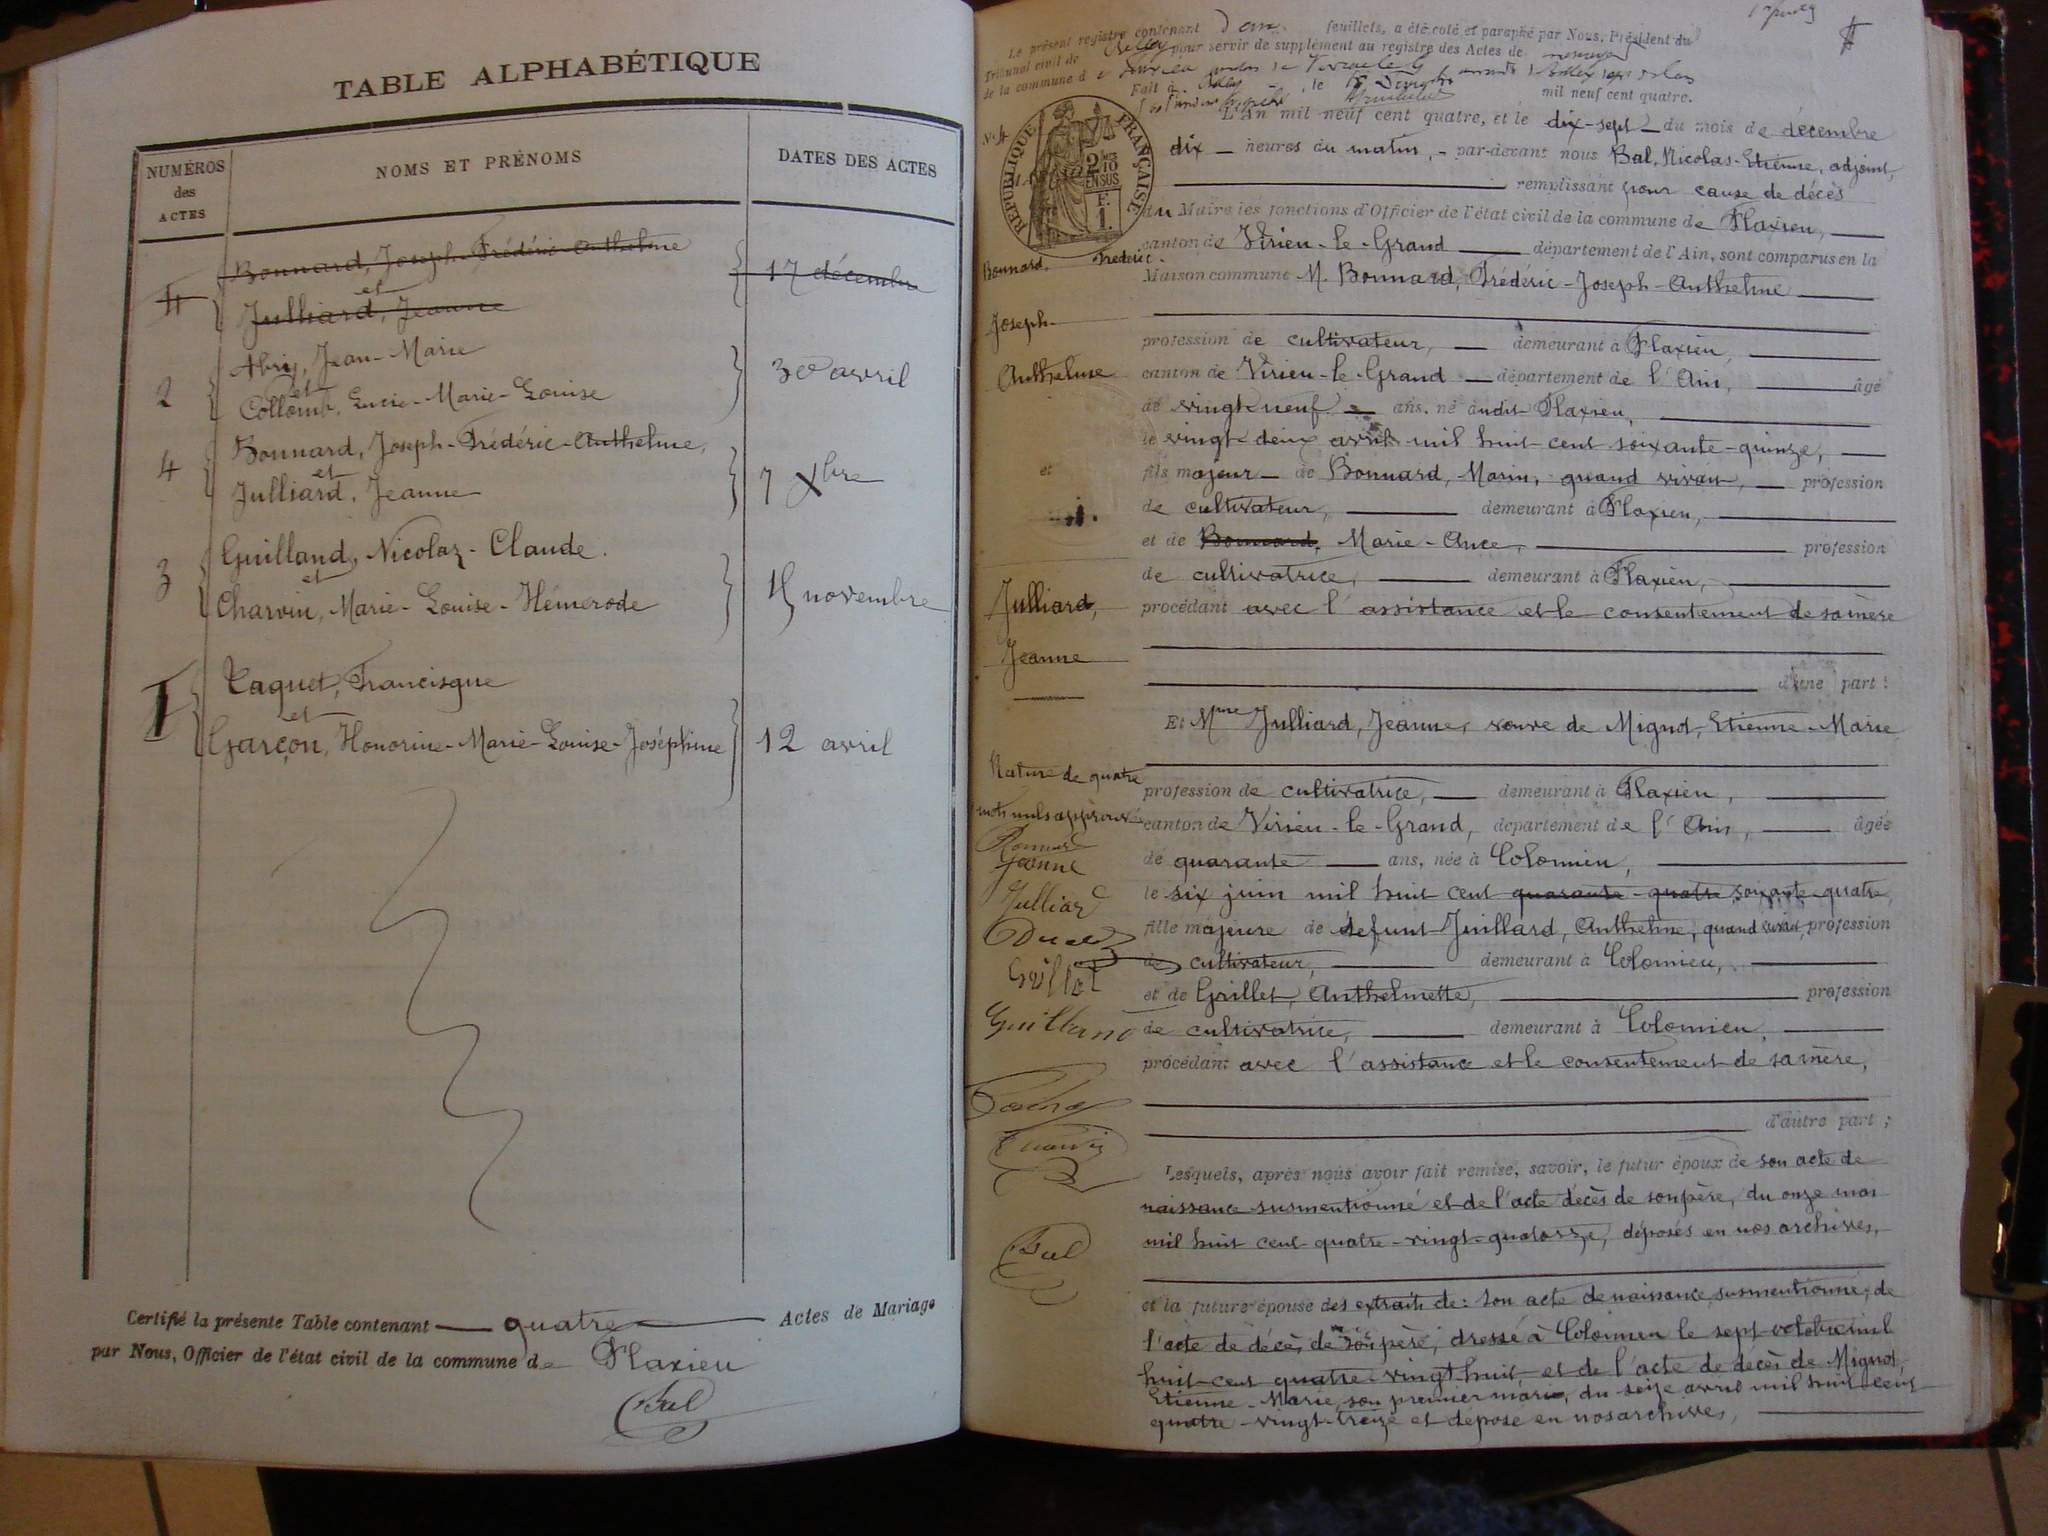 TABLE ALPHABÉTIQUE
NUMÉROS des ACTES
NOMS ET PRÉNOMS
DATES DES ACTES
Bonnard, Joseph-Frédéric-Anthelme
4 et 17 décembre
Julliard, Jeanne
Abry, Jean-Marie
2 et 30 avril
Collomb, Lucie-Marie-Louise
Bonnard, Joseph-Frédéric-Anthelme,
4 et 7 Xbre
Julliard, Jeanne
Guilland, Nicolas-Claude.
3 et 15 novembre
Charvin, Marie-Louise-Hémerode
Taquet, Francisque
1 et
Garçon, Honorine-Marie-Louise-Joséphine 12 avril
Certifié la présente Table contenant quatre Actes de Mariage
par Nous, Officier de l'état civil de la commune de Flaxieu
Bal
Le présent registre contenant feuillets, a été coté et paraphé par Nous, Président du
Tribunal civil de Belley pour servir de supplément au registre des Actes de
de la commune de
Fait à Belley, le mil neuf cent quatre.
N° 4
RÉPUBLIQUE FRANÇAISE
L'An mil neuf cent quatre, et le dix-sept du mois de décembre
dix heures du matin, par-devant nous Bal, Nicolas-Etienne, adjoint,
remplissant pour cause de décès
du Maire les fonctions d'Officier de l'état civil de la commune de Flaxieu,
canton de Virieu-le-Grand département de l'Ain, sont comparus en la
Bonnard, Frédéric-
Maison commune M. Bonnard, Frédéric-Joseph-Anthelme
Joseph-
profession de cultivateur, demeurant à Flaxieu,
Anthelme
canton de Virieu-le-Grand département de l'Ain, âgé
de vingt neuf ans, né audit Flaxieu,
le vingt deux avril mil huit cent soixante-quinze,
et
fils majeur de Bonnard, Marin, quand vivait, profession
de cultivateur, demeurant à Flaxieu,
et de Bonnard, Marie-Ance, profession
de cultivatrice, demeurant à Flaxieu,
Julliard,
procédant avec l'assistance et le consentement de sa mère
Jeanne
d'une part;
Et Mme Julliard, Jeanne, veuve de Mignot, Etienne-Marie
Rature de quatre
profession de cultivatrice, demeurant à Flaxieu,
mots nuls approuvé
canton de Virieu-le-Grand, département de l'Ain, âgée
Bonnard
Jeanne
de quarante ans, née à Colomieu,
Julliard
le six juin mil huit cent quarante-quatre soixante-quatre,
fille majeure de défunt Juillard, Anthelme, quand vivait, profession
de cultivateur, demeurant à Colomieu,
Grillet
et de Grillet, Anthelmette, profession
Guilland
de cultivatrice, demeurant à Colomieu,
procédant avec l'assistance et le consentement de sa mère,
d'autre part;
Lesquels, après nous avoir fait remise, savoir, le futur époux de son acte de
naissance susmentionné et de l'acte décès de son père, du onze mai
mil huit cent quatre-vingt-quatorze, déposés en nos archives,
Bal
et la future épouse des extraits de: son acte de naissance susmentionné, de
l'acte de décès de son père, dressé à Colomieu le sept octobre mil
huit-cent quatre vingt huit et de l'acte de décès de Mignot,
Etienne-Marie, son premier mari, du seize avril mil huit cent
quatre-vingt-treize et déposé en nos archives,